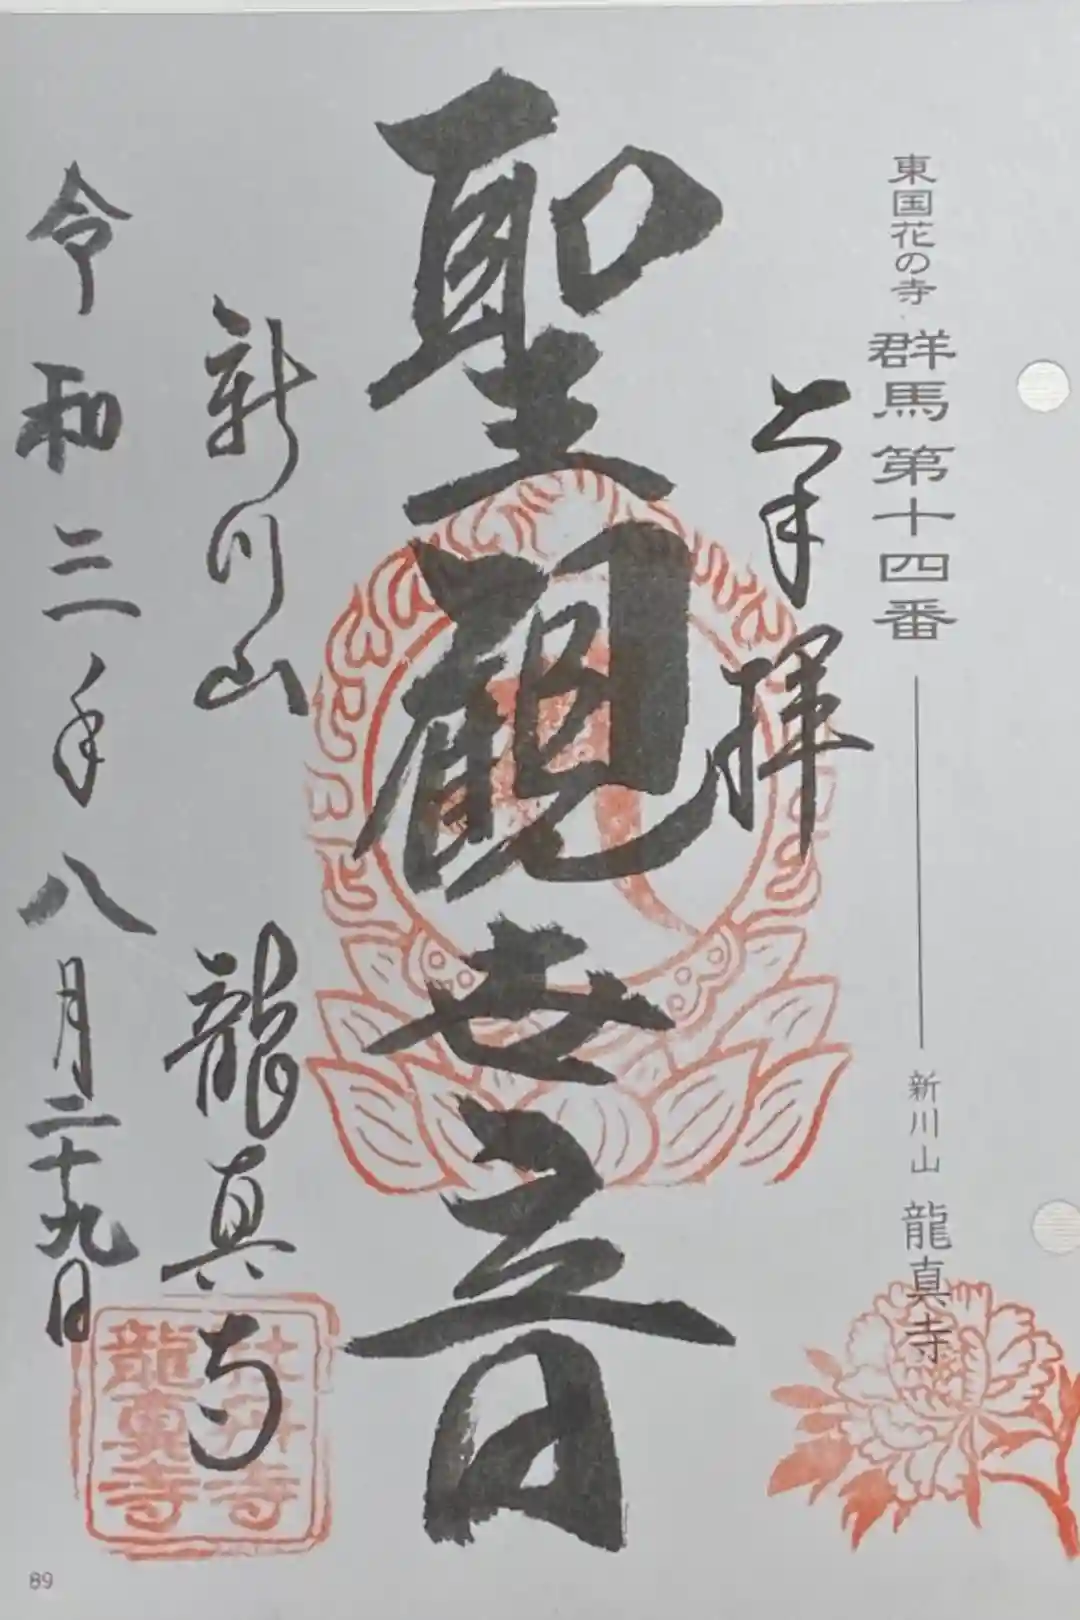 東国花の寺 群馬第十四番 新川山 龍真寺
奉拝
聖観世音
新川山 龍真寺
令和三年八月二十九日
牡丹寺
龍真寺
89